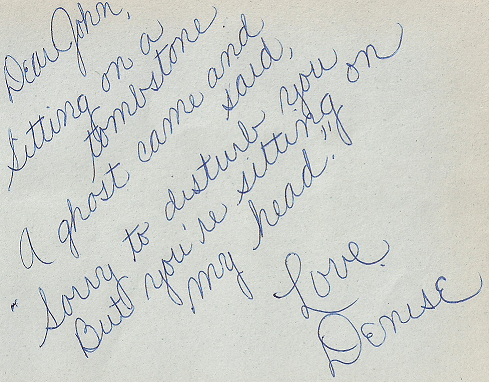 Dear John,
Sitting on a
tombstone
A ghost came and
said,
Sorry to disturb you
But you're sitting on
my head."
Love.
Denise